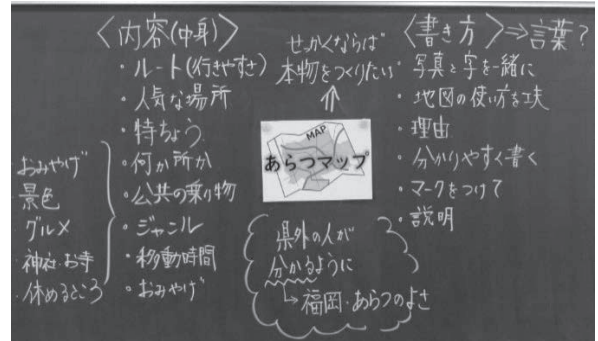 〈内容(中身)〉
・ルート(行きやすさ)
・人気な場所
・特ちょう
・何か所か
・公共の乗り物
・ジャンル
・移動時間
・おみやげ
おみやげ
景色
グルメ
・神社・お寺
・休めるところ
せっかくならば
本物をつくりたい
MAP
あらつマップ
県外の人が
分かるように
福岡・あらつのよさ
〈書き方〉⇒言葉?
・写真と字を一緒に
・地図の使い方を工夫
・理由
・分かりやすく書く
・マークをつけて
・説明